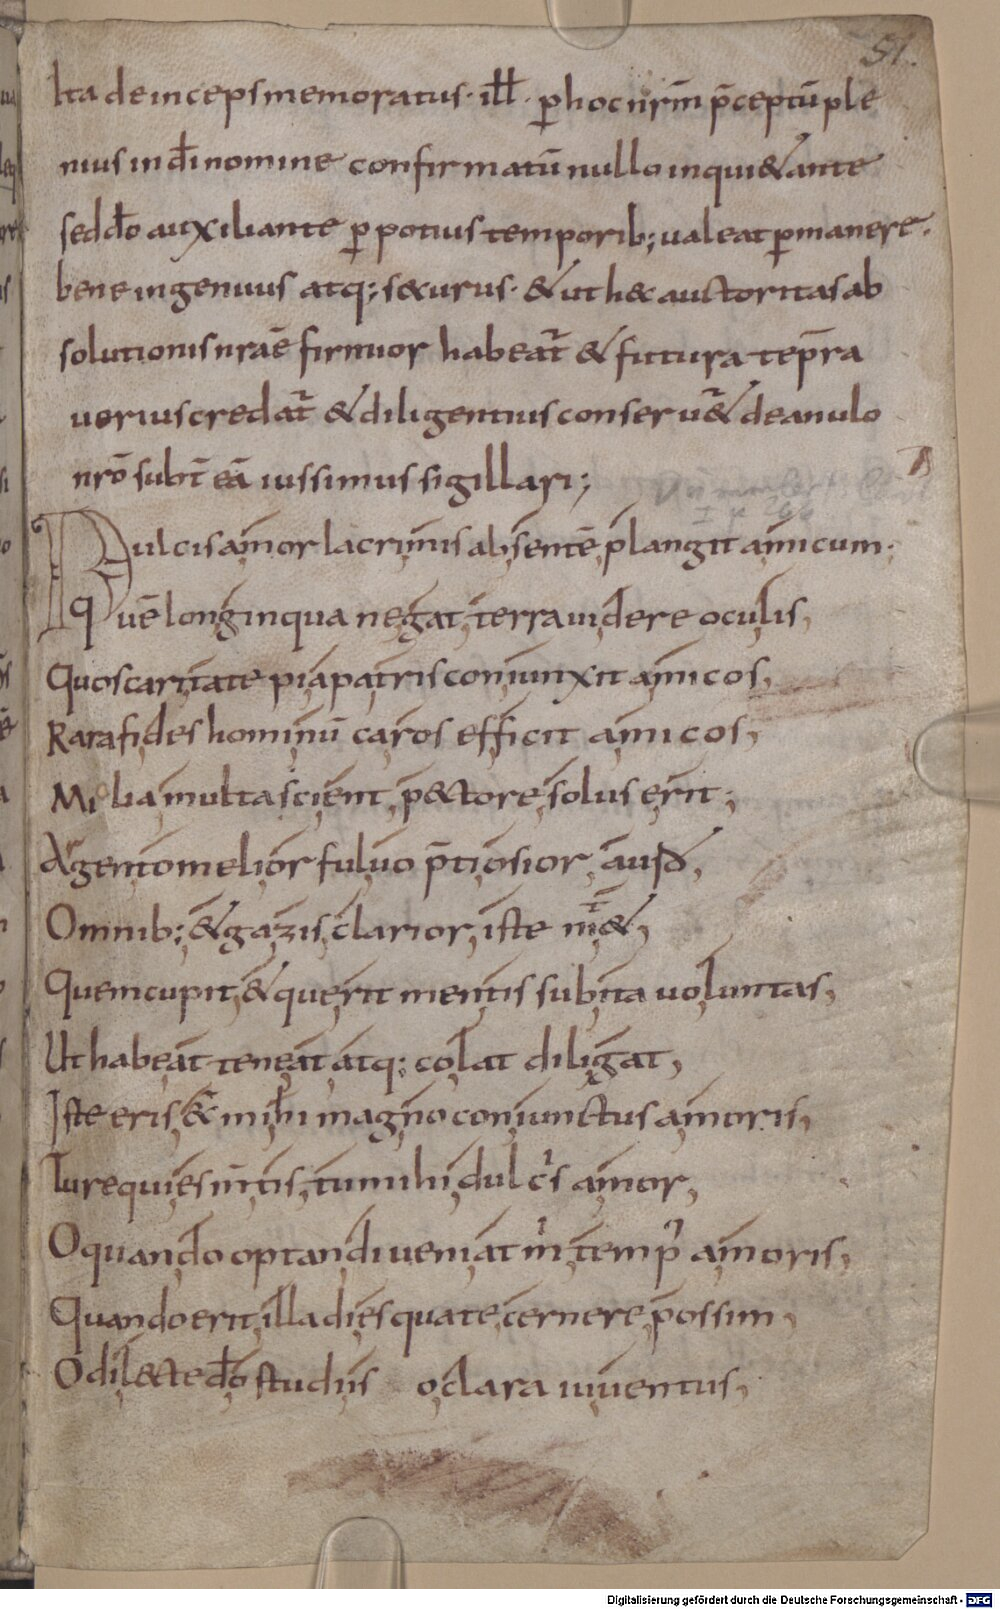 51.
Ita deinceps memoratus · ill̄ · p̱ hoc nr̄m p̄ceptū ple
nius in dī nomine confirmatū nullo inqui&ante
sed dō auxiliante p̱ potius temporib; ualeat p̱manere.
bene ingenuus atq; securus · & ut hęc auctoritas ab
solutionis nrāe firmior habeat̄ & futura tēp̄ra
uerius credat̄ & diligentius conseru&̄ de anulo
nr̄o subt̄ eā iussimus sigillari;
Dulcis amor lacrimis absentē plangit amicum.
Quē longinqua negat terra uidere oculis,
Quos caritate pia patris coniunxit amicos,
Rara fides hominū caros efficit amicos,
Milia multa scient p&tore solus erit;
Argento melior fuluo p̄tiosior auro,
Omnib; & gazis clarior iste nit&,
Quem cupit & querit mentis subita voluntas,
Ut habeat teneat atq; colat diligat,
Iste eris & mihi magno coniunctus amoris,
Tu requies mentis, tu mihi dulcis amor,
O quando optandi ueniat mi temp' amoris,
Quando erit illa dies qua te cernere possim,
O dil&te dō studiis o clara iuuentus,
Digitalisierung gefördert durch die Deutsche Forschungsgemeinschaft - DFG